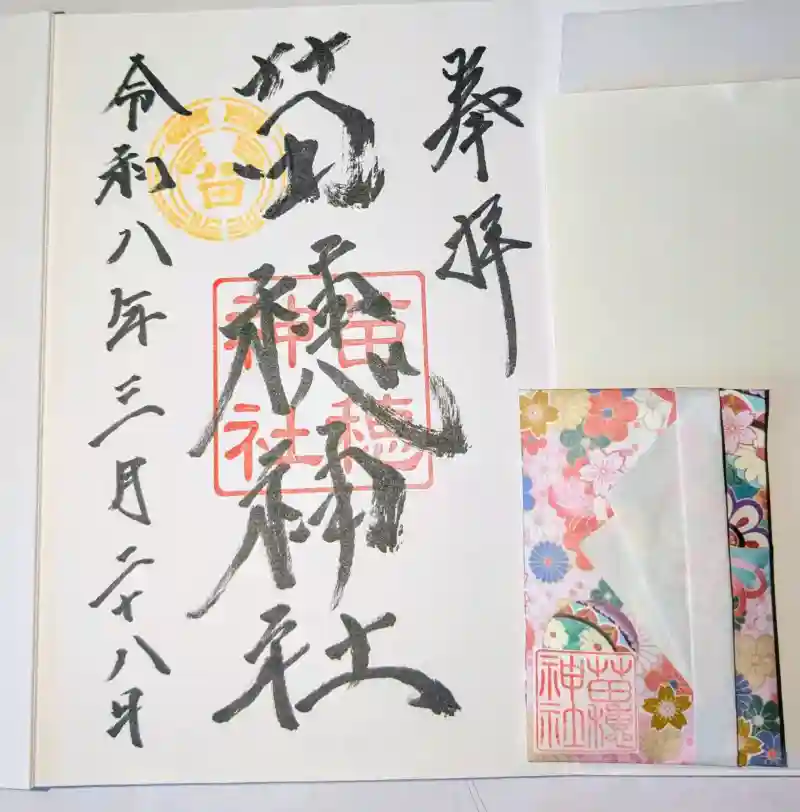 奉拝
苗穂神社
苗穂
神社
令和八年三月二十八日
苗穂
神社